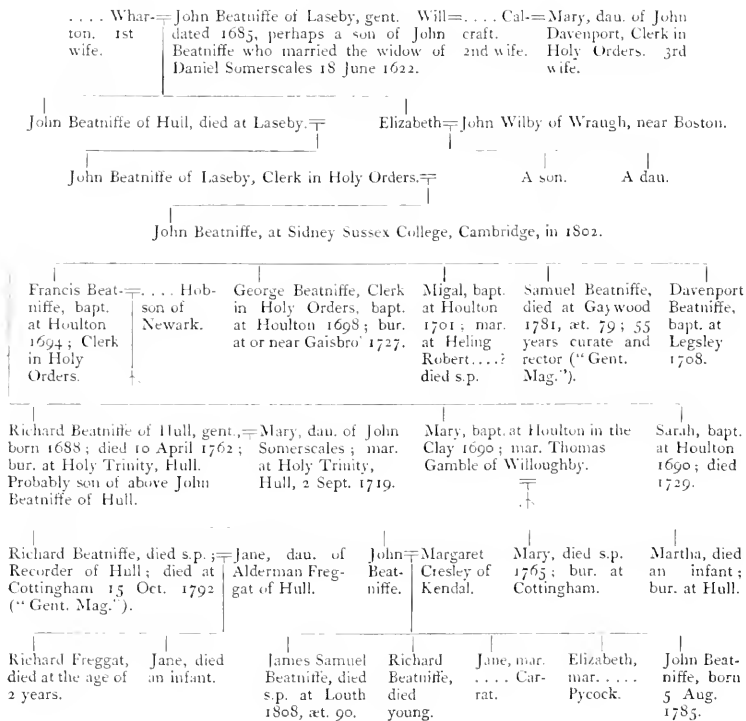 .... Whar-
ton. 1st
wife.
John Beatniffe of Laseby, gent. Will
dated 1685, perhaps a son of John
Beatniffe who married the widow of
Daniel Somerscales 18 June 1622.
.... Cal-
craft.
2nd wife.
Mary, dau. of John
Davenport, Clerk in
Holy Orders. 3rd
wife.
John Beatniffe of Hull, died at Laseby.
Elizabeth
John Wilby of Wraugh, near Boston.
John Beatniffe of Laseby, Clerk in Holy Orders.
A son.
A dau.
John Beatniffe, at Sidney Sussex College, Cambridge, in 1802.
Francis Beat-
niffe, bapt.
at Houlton
1694; Clerk
in Holy
Orders.
.... Hob-
son of
Newark.
George Beatniffe, Clerk
in Holy Orders, bapt.
at Houlton 1698; bur.
at or near Gaisbro' 1727.
Migal, bapt.
at Houlton
1701; mar.
at Heling
Robert....?
died s.p.
Samuel Beatniffe,
died at Gaywood
1781, æt. 79; 55
years curate and
rector ("Gent.
Mag.").
Davenport
Beatniffe,
bapt. at
Legsley
1708.
Richard Beatniffe of Hull, gent.,
born 1688; died 10 April 1762;
bur. at Holy Trinity, Hull.
Probably son of above John
Beatniffe of Hull.
Mary, dau. of John
Somerscales; mar.
at Holy Trinity,
Hull, 2 Sept. 1719.
Mary, bapt. at Houlton in the
Clay 1690; mar. Thomas
Gamble of Willoughby.
Sarah, bapt.
at Houlton
1690; died
1729.
Richard Beatniffe, died s.p.;
Recorder of Hull; died at
Cottingham 15 Oct. 1792
("Gent. Mag.").
Jane, dau. of
Alderman Freg-
gat of Hull.
John
Beat-
niffe.
Margaret
Cresley of
Kendal.
Mary, died s.p.
1765; bur. at
Cottingham.
Martha, died
an infant;
bur. at Hull.
Richard Freggat,
died at the age of
2 years.
Jane, died
an infant.
James Samuel
Beatniffe, died
s.p. at Louth
1808, æt. 90.
Richard
Beatniffe,
died
young.
Jane, mar.
.... Car-
rat.
Elizabeth,
mar.....
Pycock.
John Beat-
niffe, born
5 Aug.
1785.